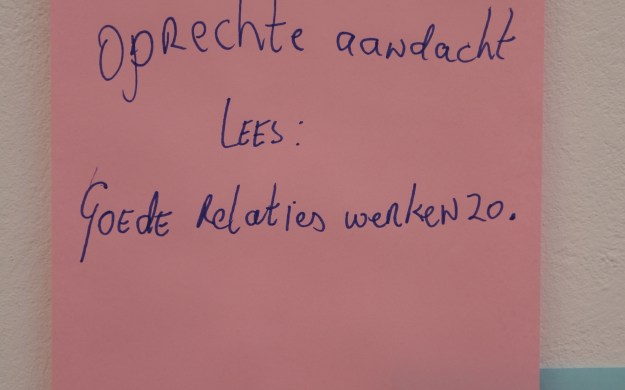 Oprechte aandacht
LEES:
GOEDE Relaties werken zo.